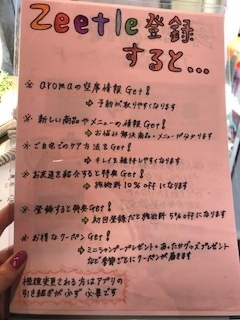 Zeetle登録
すると...
※ aromaの空席情報 Get!
⇒ 予約が取りやすくなります
※ 新しい商品やメニューの情報 Get!
⇒ お悩み解決商品・メニューが分かります
※ ご自宅でのケア方法を Get!
⇒ キレイを維持しやすくなります
※ お友達を紹介すると特典 Get!
⇒ 施術料 10% off になります
※ 登録すると特典 Get!
⇒ 初回登録だと施術料 5% off になります
※ お得なクーポン Get!
⇒ ミニシャンプープレゼント・あったかグッズプレゼント
など季節ごとにクーポンが届きます
機種変更される方はアプリの
引き継ぎが必ず必要です